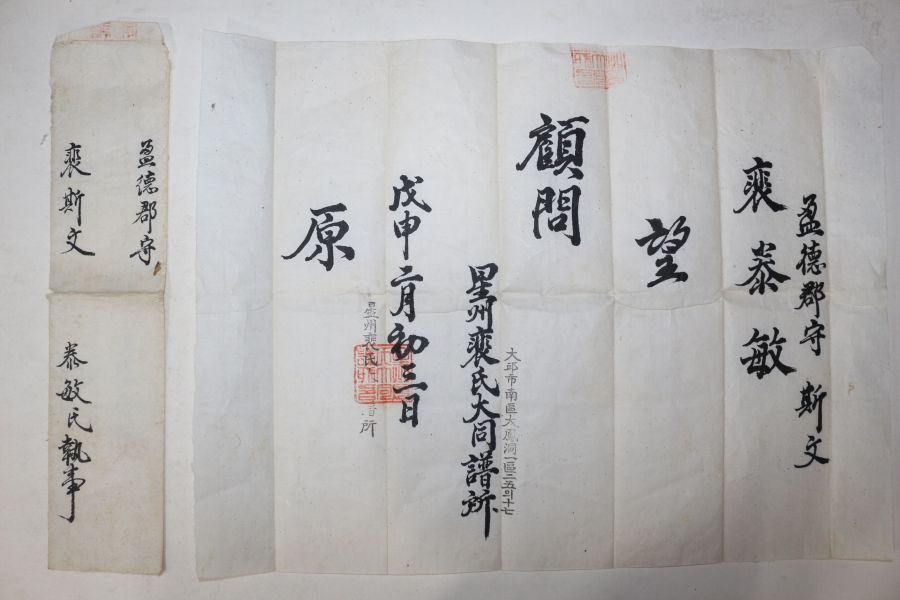 盈德郡守 斯文
裵泰敏
望
顧問
大邱市南區大鳳洞一區二五의十七
星州裵氏大同譜所
戊申二月初三日
星州裵氏 譜所
原
盈德郡守
裵斯文 泰敏氏執事